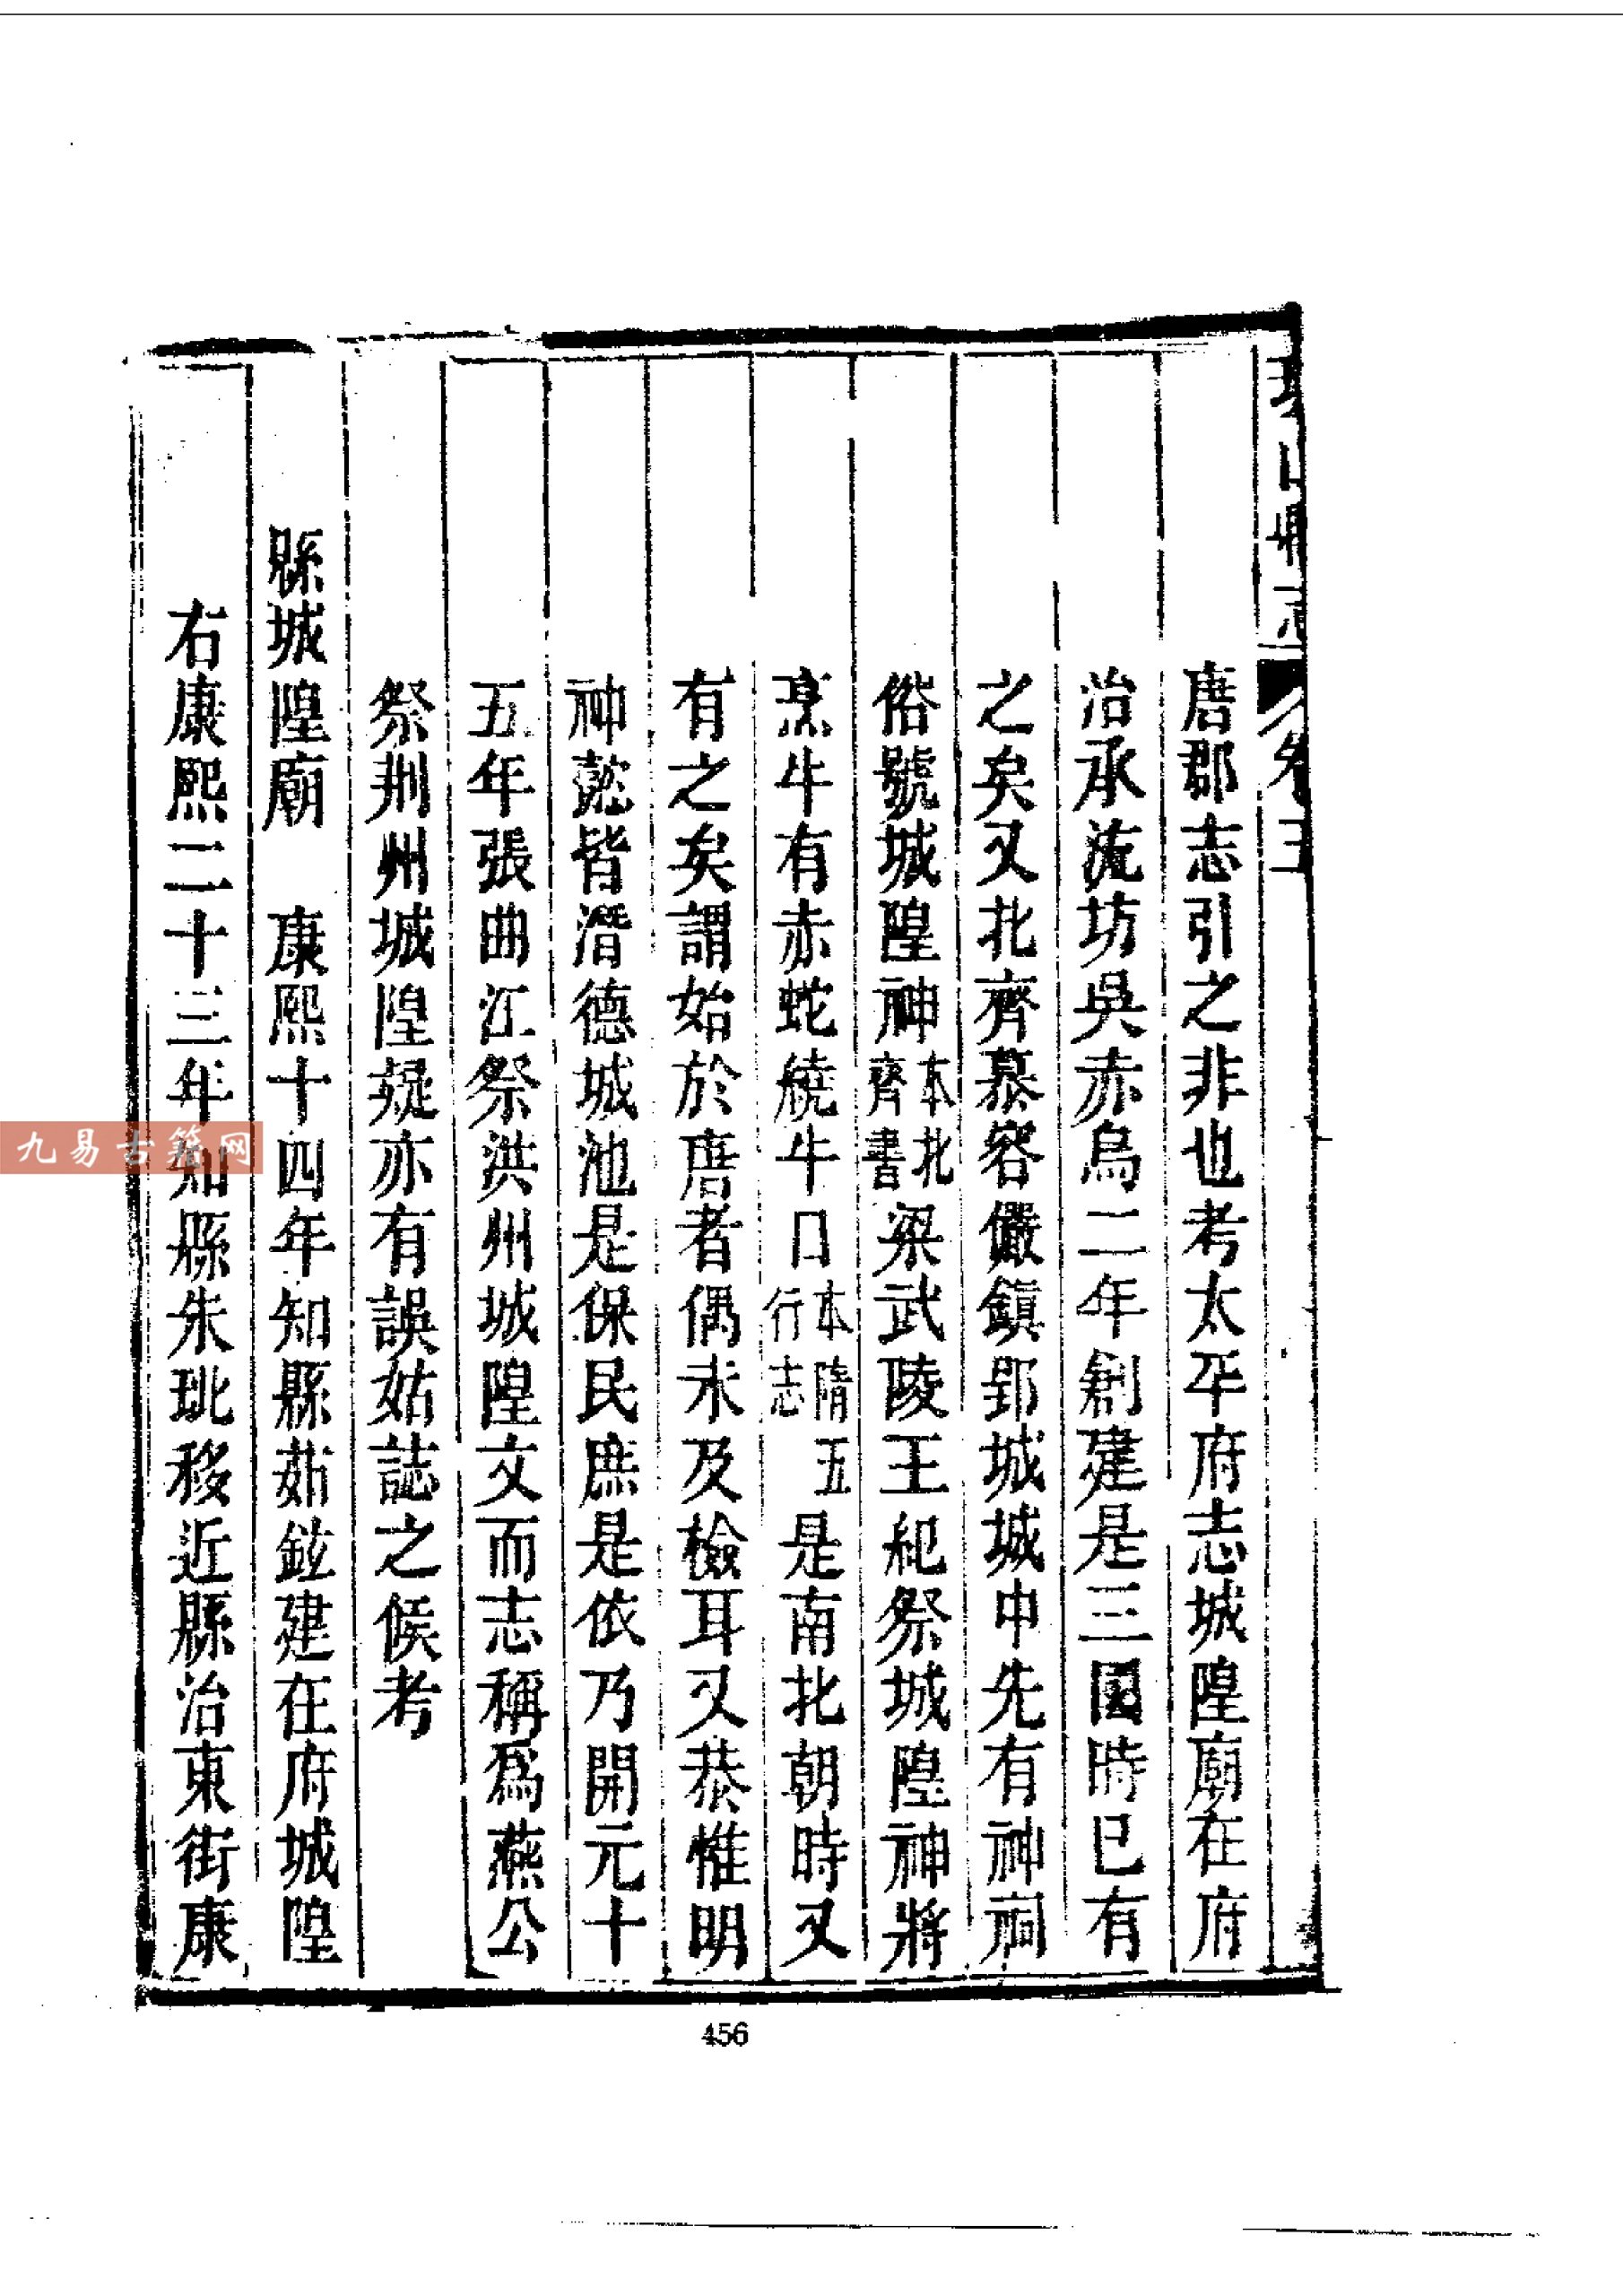 唐郡志引之非也考太平府志城隍廟在府
治承流坊吳赤烏二年創建是三國時已有
之矣又北齊慕容儼鎮郢城城中先有神祠
俗號城隍神本北齊書梁武陵王紀祭城隍神將
烹牛有赤蛇繞牛口本隋五行志是南北朝時又
有之矣謂始於唐者偶未及檢耳又恭惟明
神懿皆潛德城池是保民庶是依乃開元十
五年張曲江祭洪州城隍文而志稱為燕公
祭荆州城隍疑亦有誤姑誌之候考
縣城隍廟　康熙十四年知縣茹鉉建在府城隍
右康熙二十三年知縣朱玭移近縣治東街康
456
九易古籍网